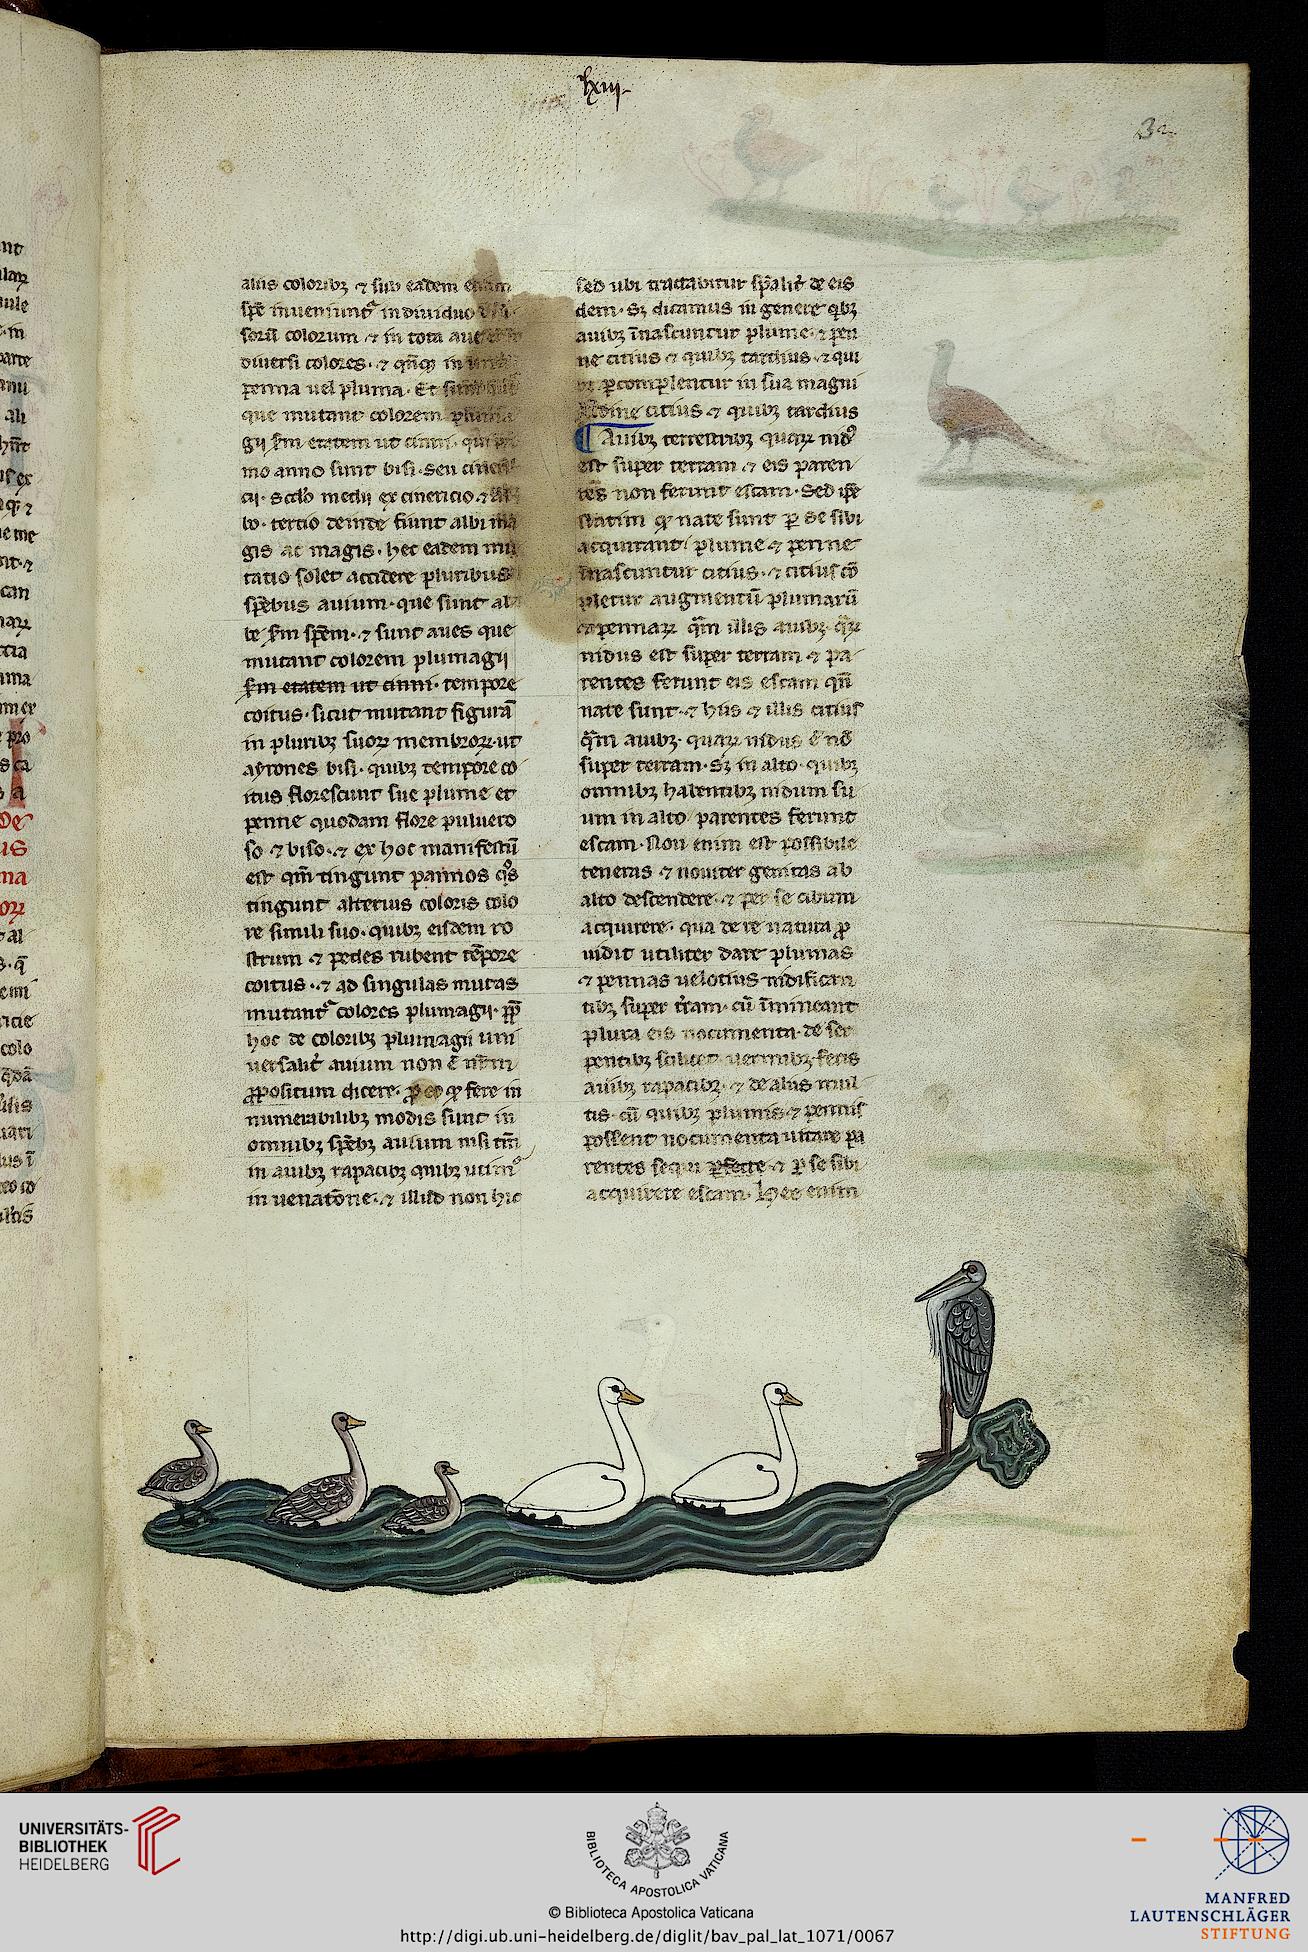 lxiii.
32
aliis coloribꝫ ⁊ sub eadem etiam
spē inueniunt᷑ indiuiduo
soꝝ colorum ⁊ in tota aue
diuersi colores. ⁊ qn̄qꝫ in
penna uel pluma. Et sunt
que mutant colorem pluma
gij s̄m etatem ut cinni. qui pri
mo anno sunt bisi. seu cineri
cij. Scd̄o medij ex cinericio ⁊ al
bo. tertio deinde fiunt albi ma
gis ac magis. hec eadem mu
tatio solet accidere pluribus
spēbus auium. que sunt al
be s̄m spēm. ⁊ sunt aues que
mutant colorem plumagij
s̄m etatem ut cinni. tempore
coitus. sicut mutant figurā
in pluribꝫ suoꝝ membroꝝ. ut
ayrones bisi. quibꝫ tempore co
itus florescunt sue plume et
penne quodam flore puluero
so ⁊ biso. ⁊ ex hoc manifestū
est qm̄ tingunt pannos
tingunt alterius coloris colo
re simili suo. quibꝫ eisdem ro
strum ⁊ pedes rubent tēpore
coitus. ⁊ ad singulas mutas
mutant᷑ colores plumagij. ꝓpt̄
hoc de coloribꝫ plumagij uni
uersalit᷑ auium non ē nr̄m
ꝓpositum dicere. ꝓ eo qꝫ fere in
numerabilibꝫ modis sunt in
omnibꝫ spēbꝫ auium nisi tm̄
in auibꝫ rapacibꝫ quibꝫ utim᷑
in uenatōne. ⁊ illud non hic
sed ubi tractabitur sp̄alit᷑ de eis
dem. Sꝫ dicamus in genere qbꝫ
auibꝫ īnascuntur plume. ⁊ pen
ne citius ⁊ quibꝫ tardius. ⁊ qui
bꝫ ꝑcomplentur in sua magni
tudine citius ⁊ quibꝫ tardius
¶ Auibꝫ terrestribꝫ quaꝝ nid᷒
est super terram ⁊ eis paren
tes non ferunt escam. Sed ip̄e
statim qꝫ nate sunt ꝑ se sibi
acquirant. plume ⁊ penne
īnascuntur citius. ⁊ citius cō
pletur augmentū plumarū
⁊ pennaꝝ qm̄ illis auibꝫ. quaꝝ
nidus est super terram ⁊ pa
rentes ferunt eis escam qn̄
nate sunt. ⁊ hiis ⁊ illis citius
qm̄ auibꝫ. quaꝝ nidus ē nō
super terram. Sꝫ in alto. quibꝫ
omnibꝫ habentibꝫ nidum su
um in alto parentes ferunt
escam. Non enim est possibile
teneras ⁊ nouiter genitas ab
alto descendere. ⁊ per se cibum
acquirere. qua de re natura ꝓ
uidit utiliter dare plumas
⁊ pennas uelotius nidifican
tibꝫ super tr̄am. cū īmineant
plura eis nocumenta. de ser
pentibꝫ scilicet uermibꝫ. feris
auibꝫ rapacibꝫ. ⁊ de aliis mul
tis. cū quibꝫ plumis ⁊ pennis
possent nocumenta uitare pa
rentes sequi ꝑfecte. ⁊ ꝑ se sibi
acquirere escam. Hec enim
UNIVERSITÄTS-
BIBLIOTHEK
HEIDELBERG
BIBLIOTECA APOSTOLICA VATICANA
© Biblioteca Apostolica Vaticana
http://digi.ub.uni-heidelberg.de/diglit/bav_pal_lat_1071/0067
MANFRED
LAUTENSCHLÄGER
STIFTUNG